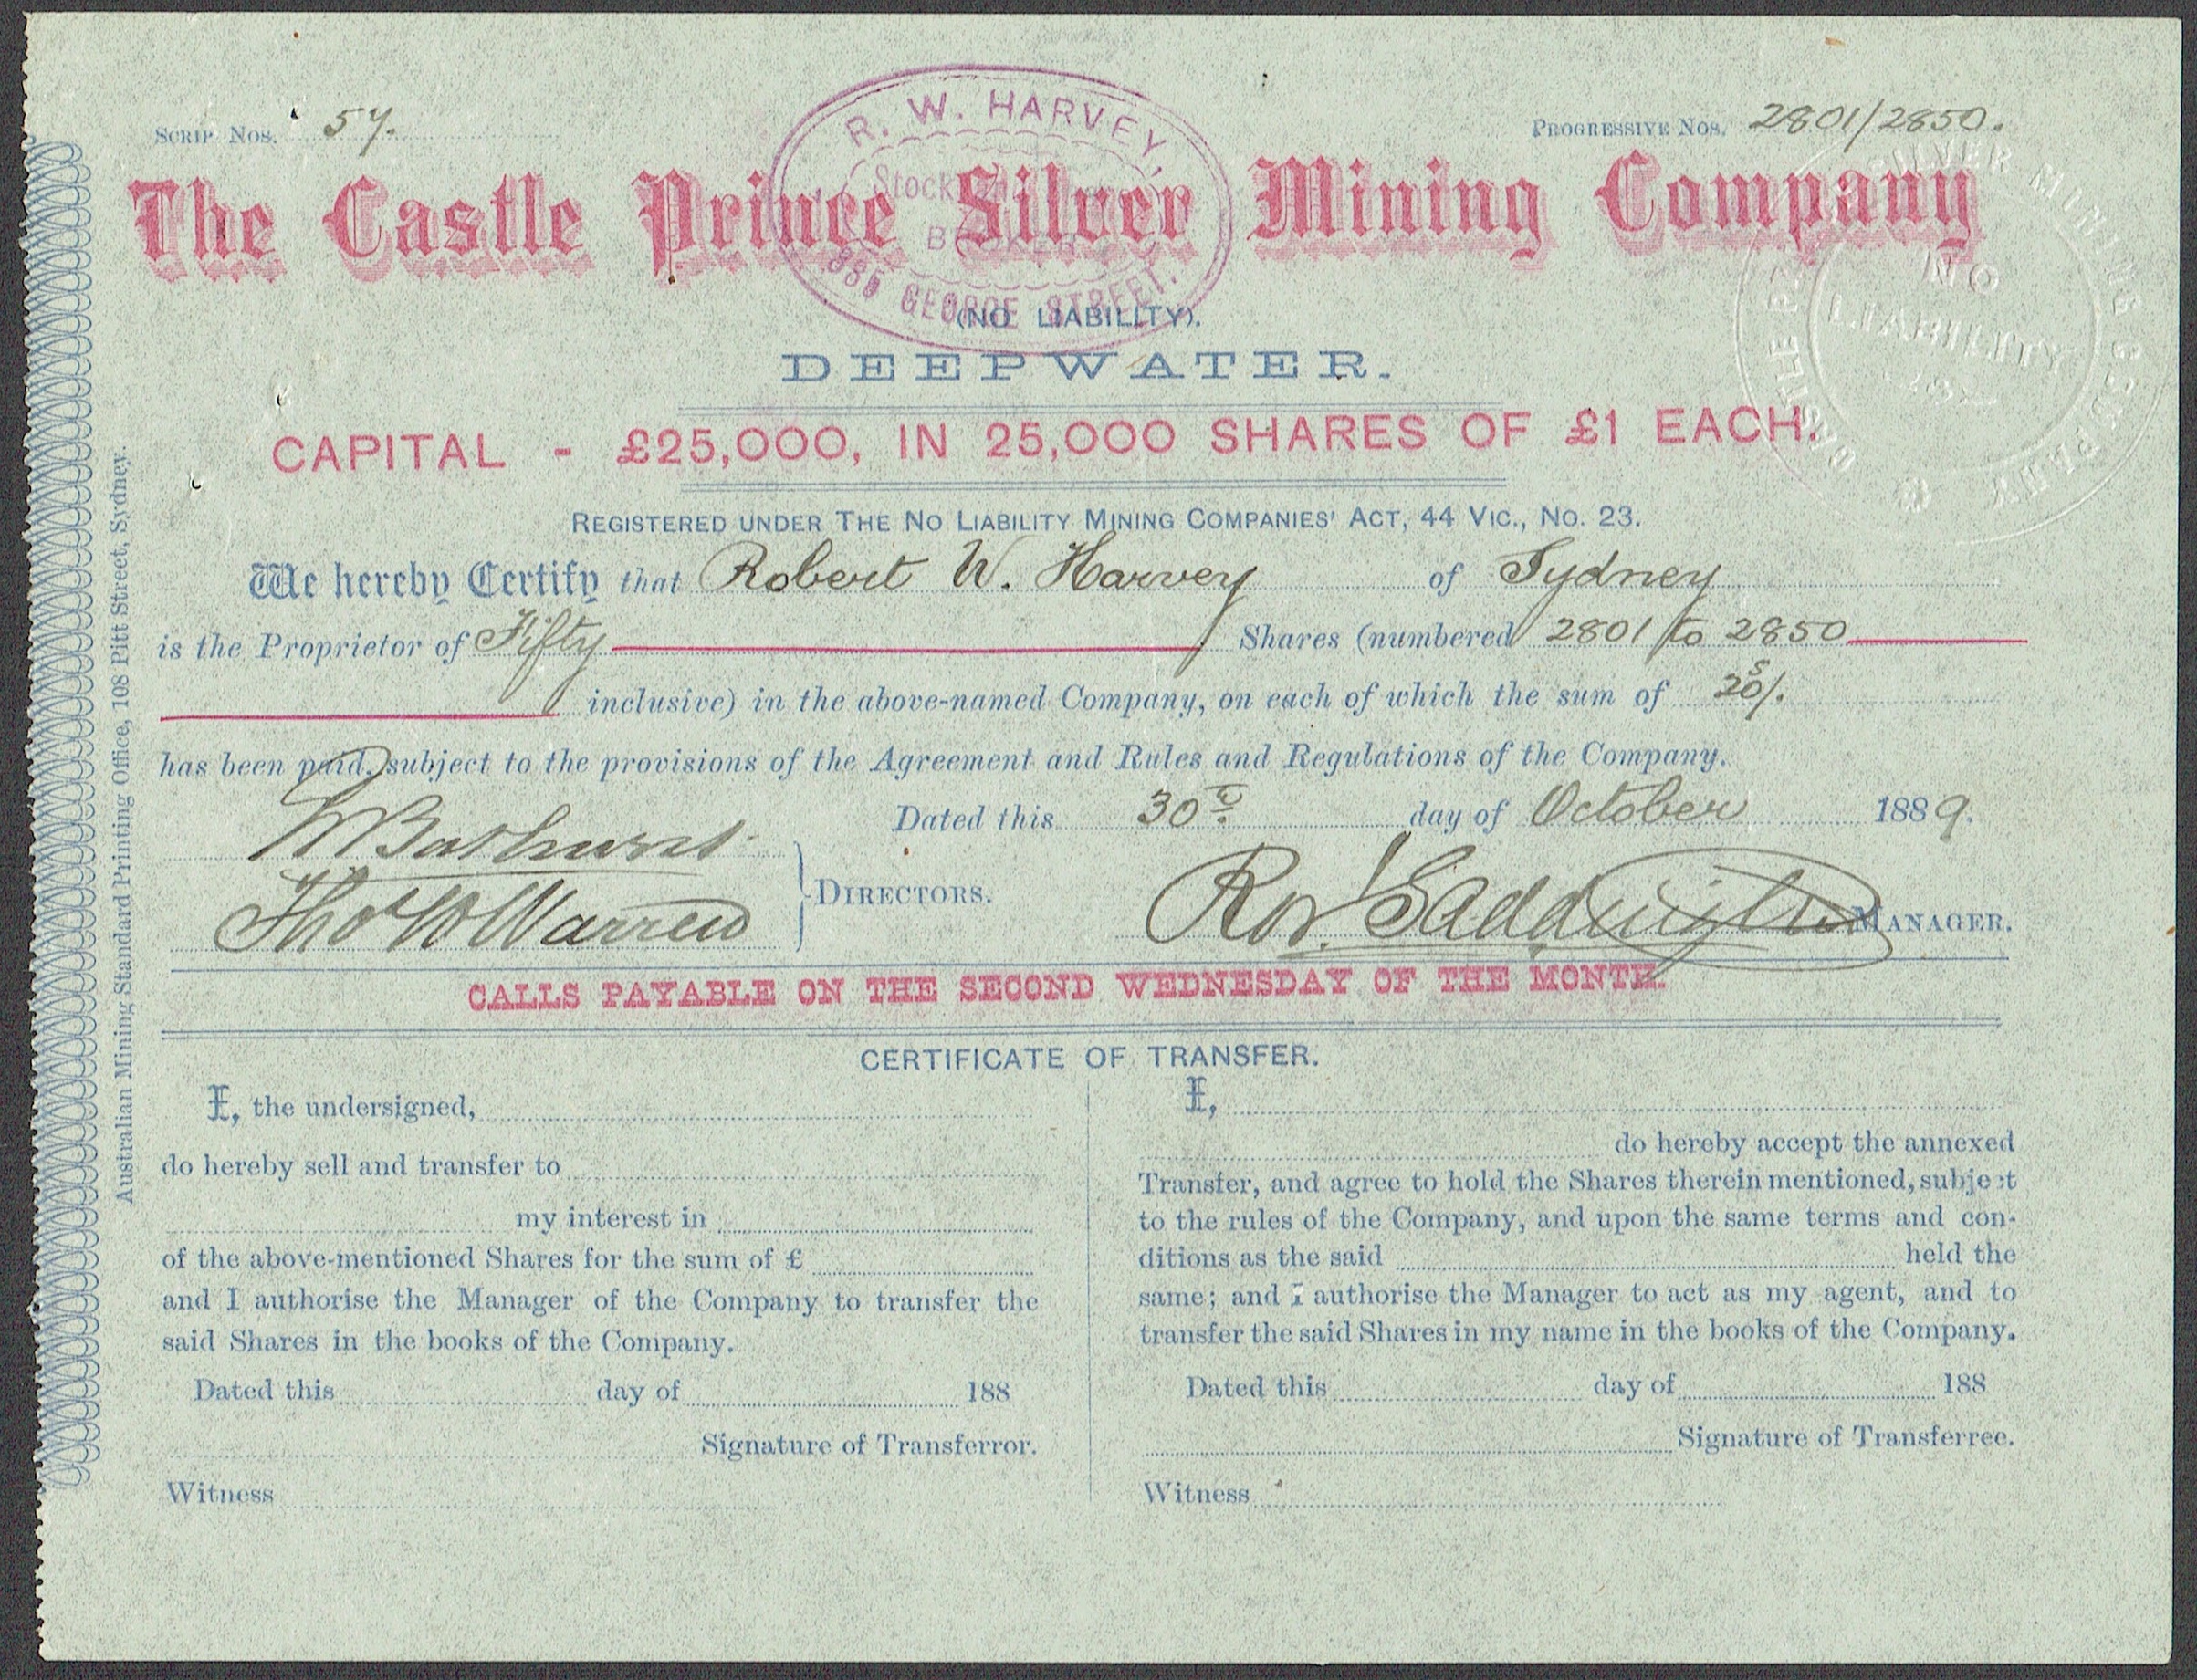 SCRIP NOS. 57. PROGRESSIVE NOS. 2801/2850.
R. W. HARVEY,
Stock
BROKER
GEORGE STREET.
The Castle Prince Silver Mining Company
(NO LIABILITY).
DEEPWATER.
CAPITAL - £25,000, IN 25,000 SHARES OF £1 EACH.
CASTLE SILVER MINING COMPANY
NO
LIABILITY
REGISTERED UNDER THE NO LIABILITY MINING COMPANIES' ACT, 44 VIC., No. 23.
We hereby Certify that Robert W. Harvey of Sydney
is the Proprietor of Fifty Shares (numbered 2801 to 2850
inclusive) in the above-named Company, on each of which the sum of 20/.
has been paid, subject to the provisions of the Agreement and Rules and Regulations of the Company.
Dated this 30th day of October 1889.
Bathurst
Thos W Warren
DIRECTORS.
MANAGER.
CALLS PAYABLE ON THE SECOND WEDNESDAY OF THE MONTH.
CERTIFICATE OF TRANSFER.
I, the undersigned,
do hereby sell and transfer to
my interest in
of the above-mentioned Shares for the sum of £
and I authorise the Manager of the Company to transfer the
said Shares in the books of the Company.
Dated this day of 188
Signature of Transferror.
Witness
I,
do hereby accept the annexed
Transfer, and agree to hold the Shares therein mentioned, subject
to the rules of the Company, and upon the same terms and con-
ditions as the said held the
same; and I authorise the Manager to act as my agent, and to
transfer the said Shares in my name in the books of the Company.
Dated this day of 188
Signature of Transferree.
Witness
Australian Mining Standard Printing Office, 108 Pitt Street, Sydney.